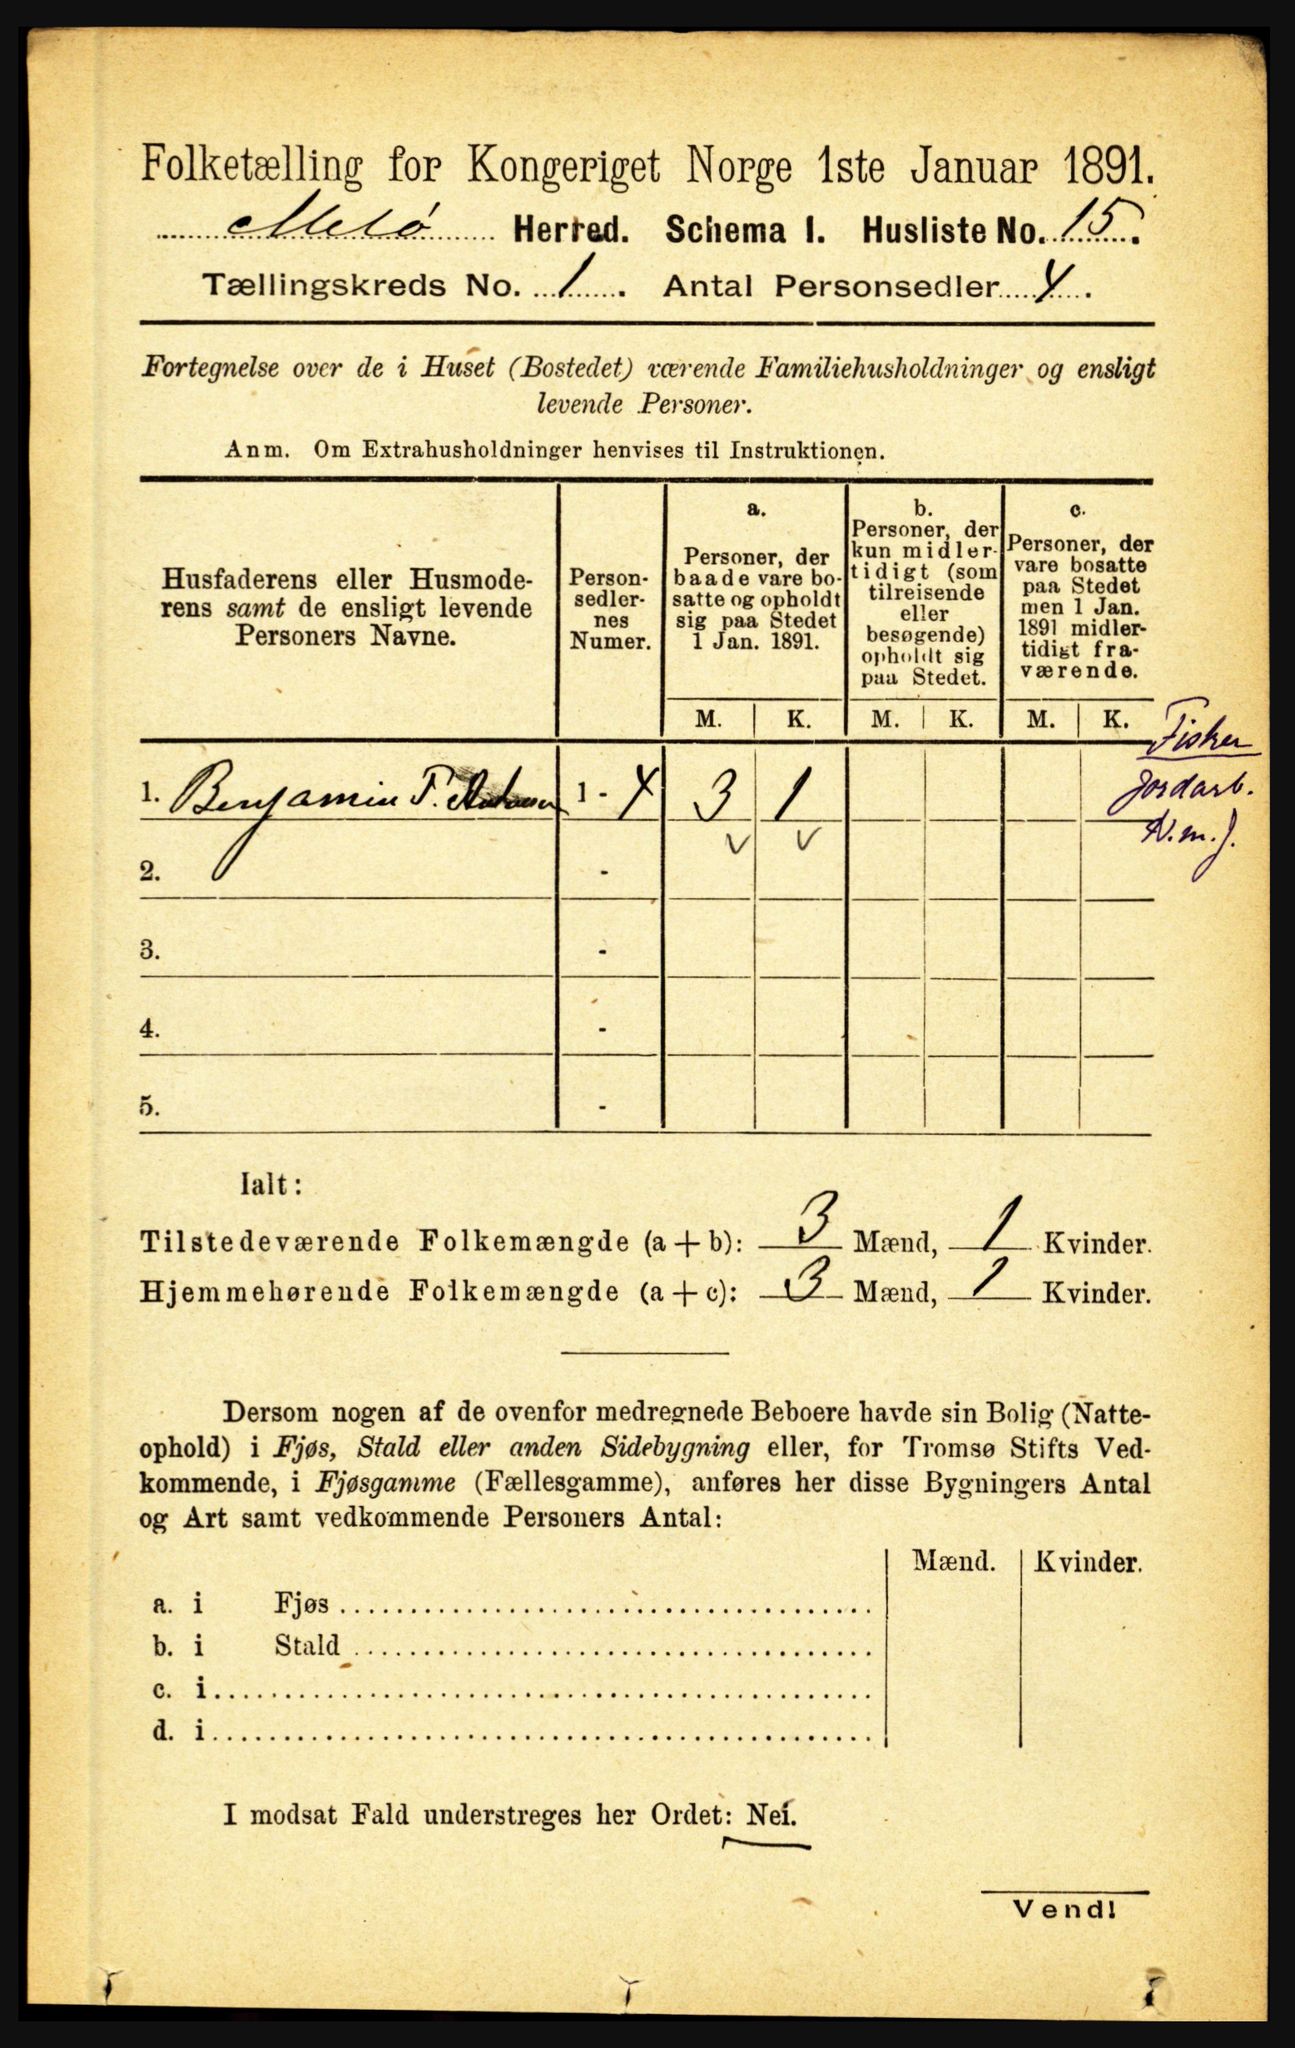 Folketælling for Kongeriget Norge 1ste Januar 1891.
Melø Herred. Schema I. Husliste No. 15.
Tællingskreds No. 1. Antal Personsedler 4.
Fortegnelse over de i Huset (Bostedet) værende Familiehusholdninger og ensligt
levende Personer.
Anm. Om Extrahusholdninger henvises til Instruktionen.
Husfaderens eller Husmode-
rens samt de ensligt levende
Personers Navne.
Person-
sedler-
nes
Numer.
a.
Personer, der
baade vare bo-
satte og opholdt
sig paa Stedet
1 Jan. 1891.
b.
Personer, der
kun midler-
tidigt (som
tilreisende
eller
besøgende)
opholdt sig
paa Stedet.
c.
Personer, der
vare bosatte
paa Stedet
men 1 Jan.
1891 midler-
tidigt fra-
værende.
M. K. M. K. M. K.
Fisker
Jordarb.
N.m.J.
1. Benjamin F. 1 - 4 3 1
2. -
3. -
4. -
5. -
Ialt:
Tilstedeværende Folkemængde (a + b): 3 Mænd, 1 Kvinder.
Hjemmehørende Folkemængde (a + c): 3 Mænd, 1 Kvinder.
Dersom nogen af de ovenfor medregnede Beboere havde sin Bolig (Natte-
ophold) i Fjøs, Stald eller anden Sidebygning eller, for Tromsø Stifts Ved-
kommende, i Fjøsgamme (Fællesgamme), anføres her disse Bygningers Antal
og Art samt vedkommende Personers Antal:
Mænd. Kvinder.
a. i Fjøs
b. i Stald
c. i
d. i
I modsat Fald understreges her Ordet: Nei.
Vend!